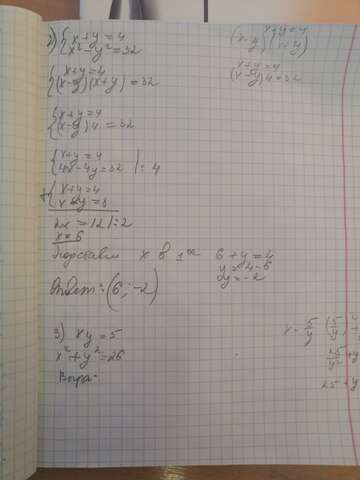 2) { x+y=4
x²-y²=32
{ x+y=4
(x-y)(x+y)=32
{ x+y=4
(x-y)4=32
{ x+y=4
4x-4y=32 |:4
+ { x+y=4
x-y=8
2x=12 |:2
x=6
Подставим x в 1ое 6+y=4
y=4-6
y=-2
Ответ: (6; -2)
3) xy=5
x²+y²=26
Выра-
x+y=4
(x-y)(x+y)
x+y=4
(x-y)4=32
x=5/y
25/y²+y
25+y